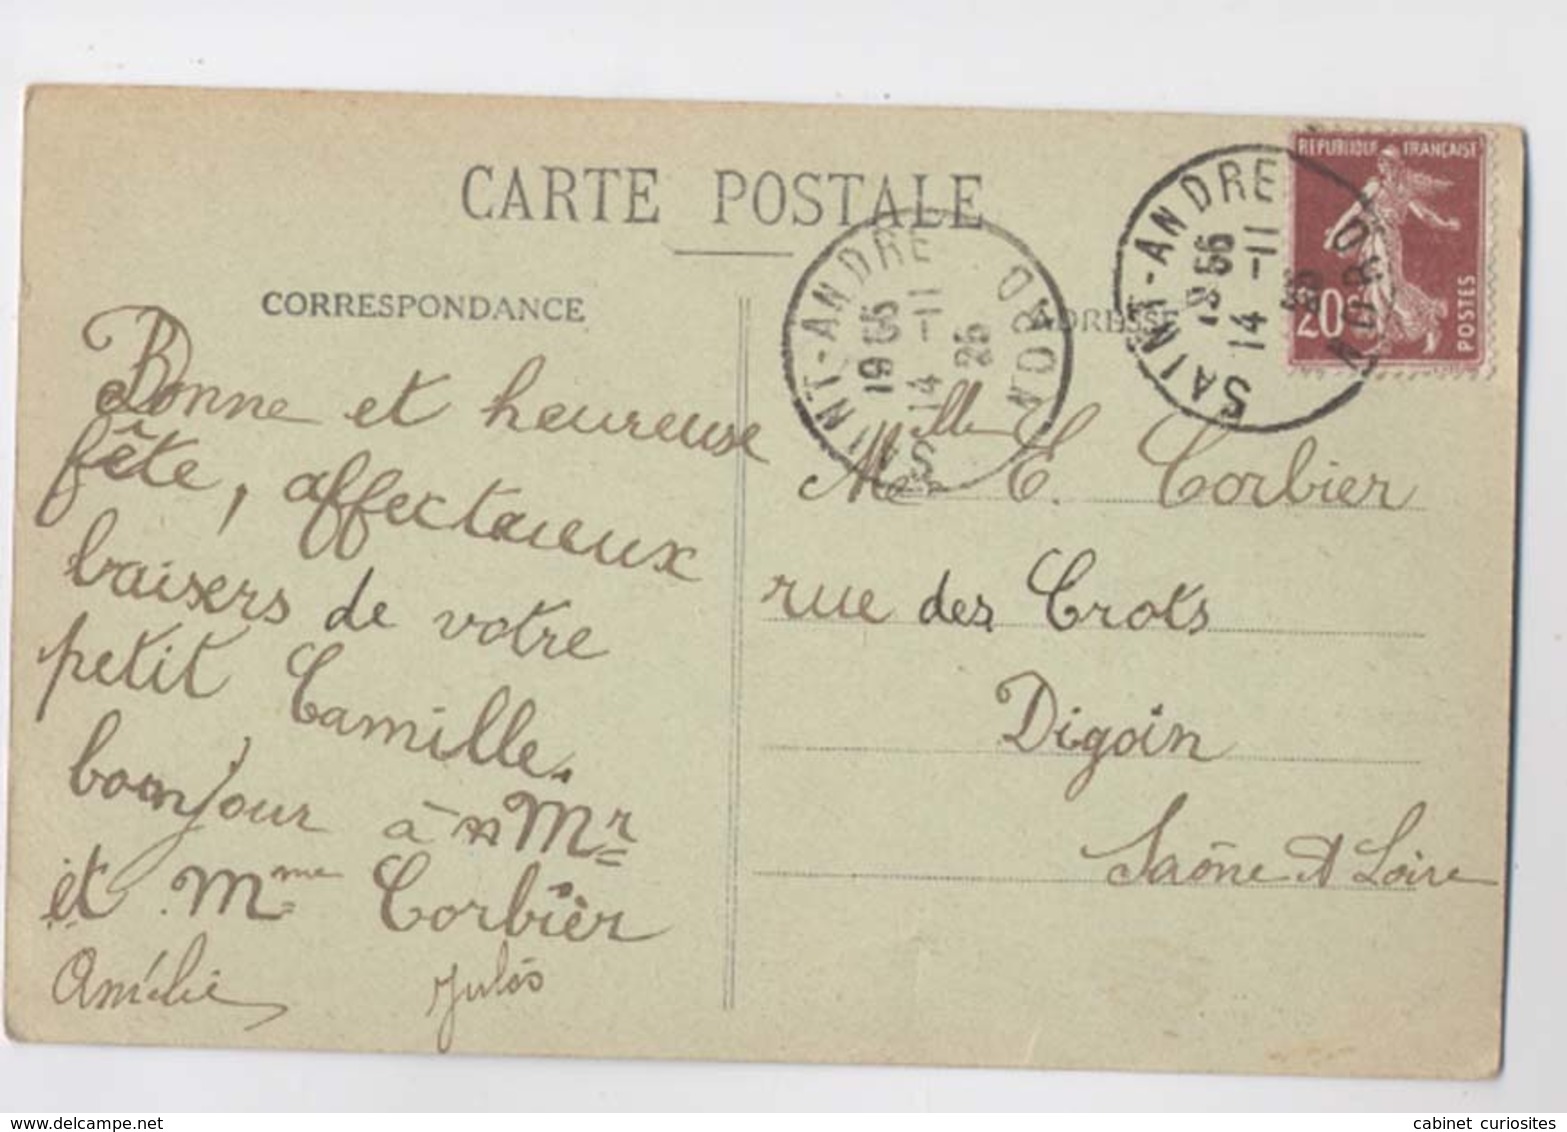 CARTE POSTALE
CORRESPONDANCE
ADRESSE
Bonne et heureuse
fête, affectueux
baisers de votre
petit Camille.
bonjour à Mr
et Mme Corbier
Amélie Jules
Melle E. Corbier
rue des Crots
Digoin
Saône et Loire
SAINT-ANDRE NORD
19 55
14 -11
25
SAINT-ANDRE NORD
19 55
14 -11
25
REPUBLIQUE FRANÇAISE
20c
POSTES
www.delcampe.net
cabinet curiosites